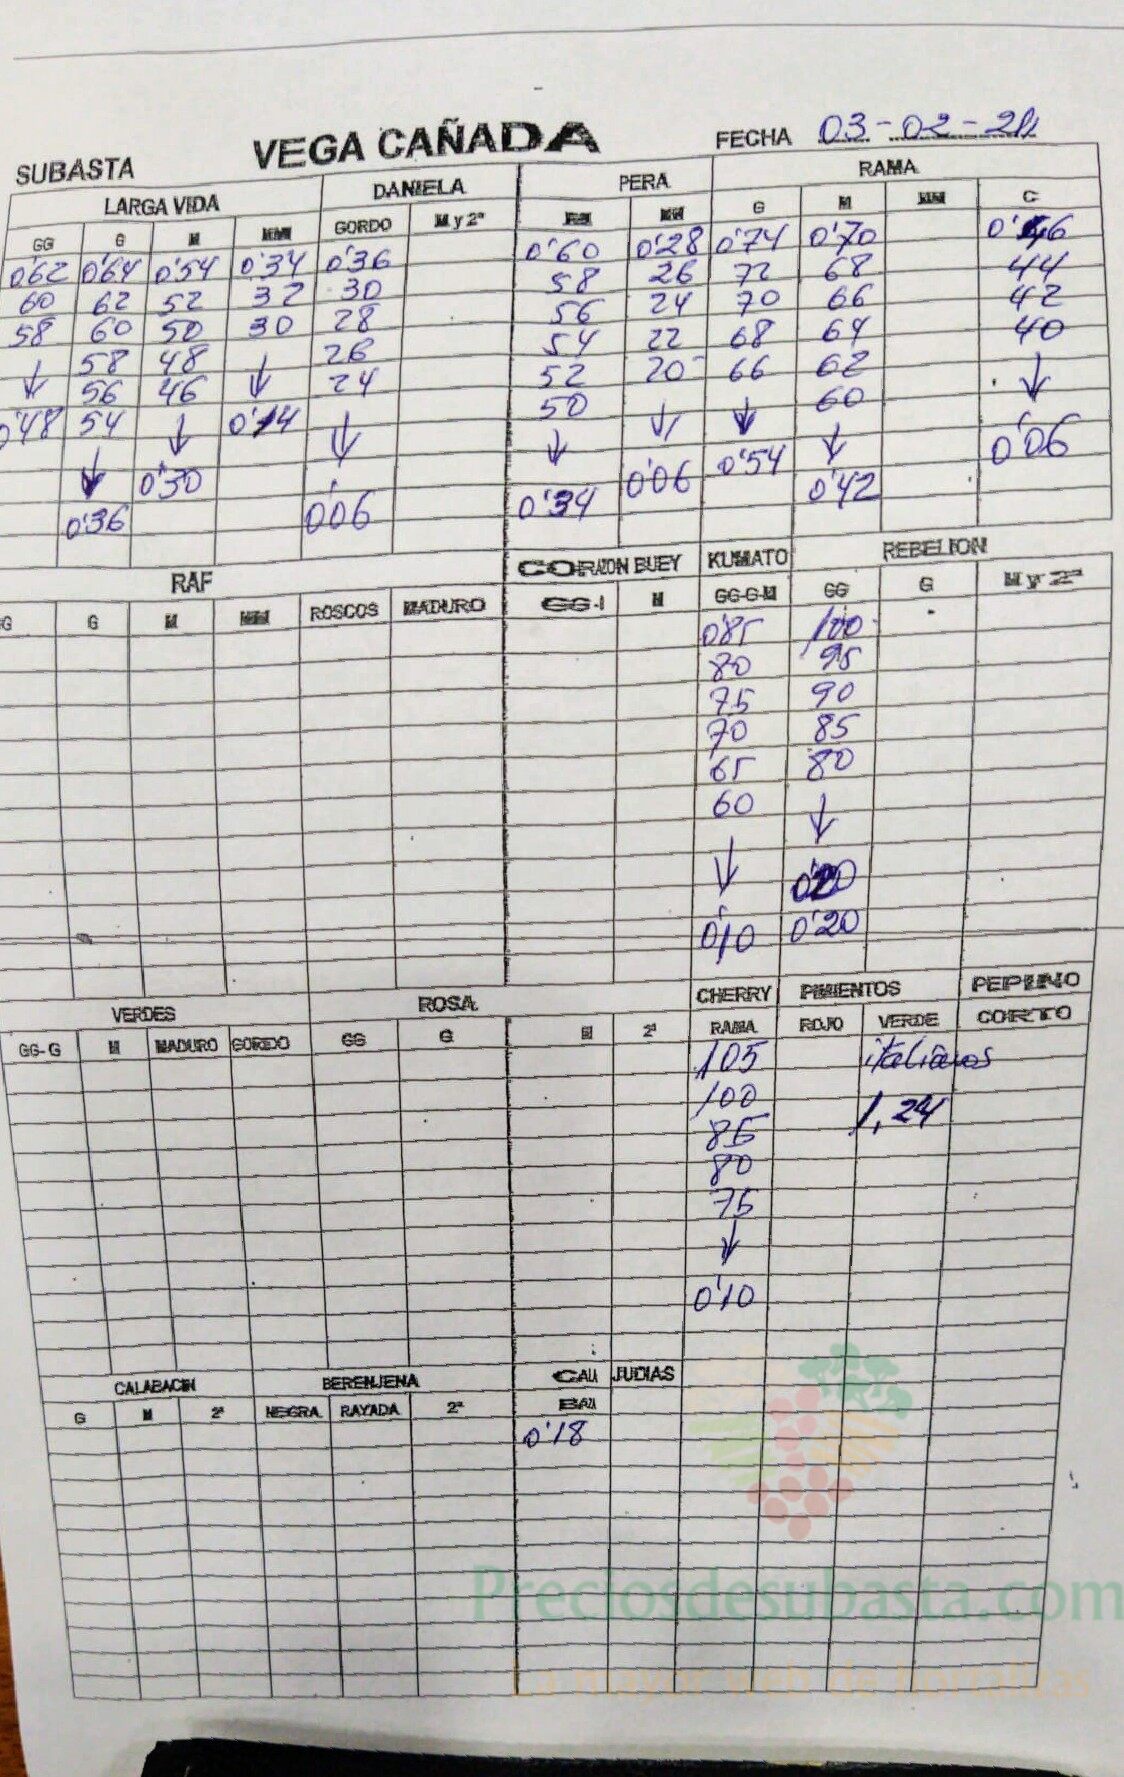 SUBASTA VEGA CAÑADA FECHA 03-02-20
LARGA VIDA DANIELA PERA RAMA
GG G M MM GORDO M y 2ª MM G M MM C
0'62 0'64 0'54 0'34 0'36 0'60 0'28 0'74 0'70 0'46
60 62 52 32 30 58 26 72 68 44
58 60 50 30 28 56 24 70 66 42
↓ 58 48 ↓ 26 54 22 68 64 40
56 46 24 52 20 66 62 ↓
0'48 54 ↓ 0'14 ↓ 50 ↓ ↓ 60
↓ 0'30 ↓ 0'06 0'54 ↓ 0'06
0'36 0'06 0'34 0'42
RAF CORAZON BUEY KUMATO REBELION
G G M MM ROSCOS MADURO GG- M GG-G-M GG G M y 2ª
0'85 100
80 95
75 90
70 85
65 80
60 ↓
↓ 0'20
0'10 0'20
VERDES ROSA CHERRY PIMIENTOS PEPINO
GG-G M MADURO GORDO GG G M 2ª RAMA ROJO VERDE CORTO
105 italianos
100 1,24
85
80
75
↓
0'10
CALABACIN BERENJENA CALA JUDIAS
G M 2ª NEGRA RAYADA 2ª BAZA
0'18
Preciosdesubasta.com
La mayor web de hortalizas